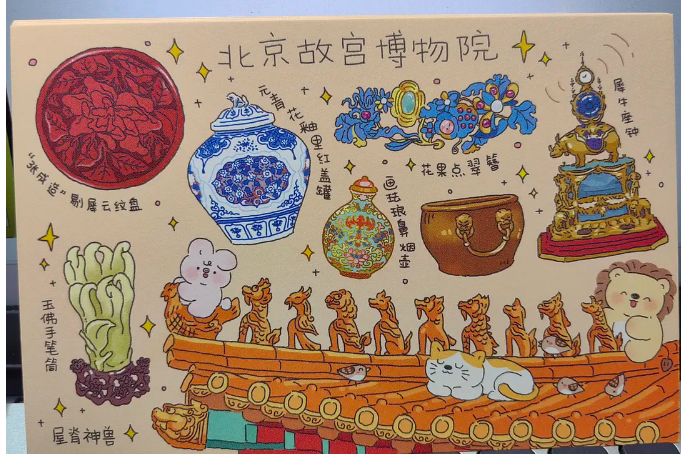 北京故宫博物院
"张成造"剔犀云纹盘
元青花釉里红盖罐
花果点翠簪
犀牛座钟
画珐琅鼻烟壶
玉佛手笔筒
屋脊神兽